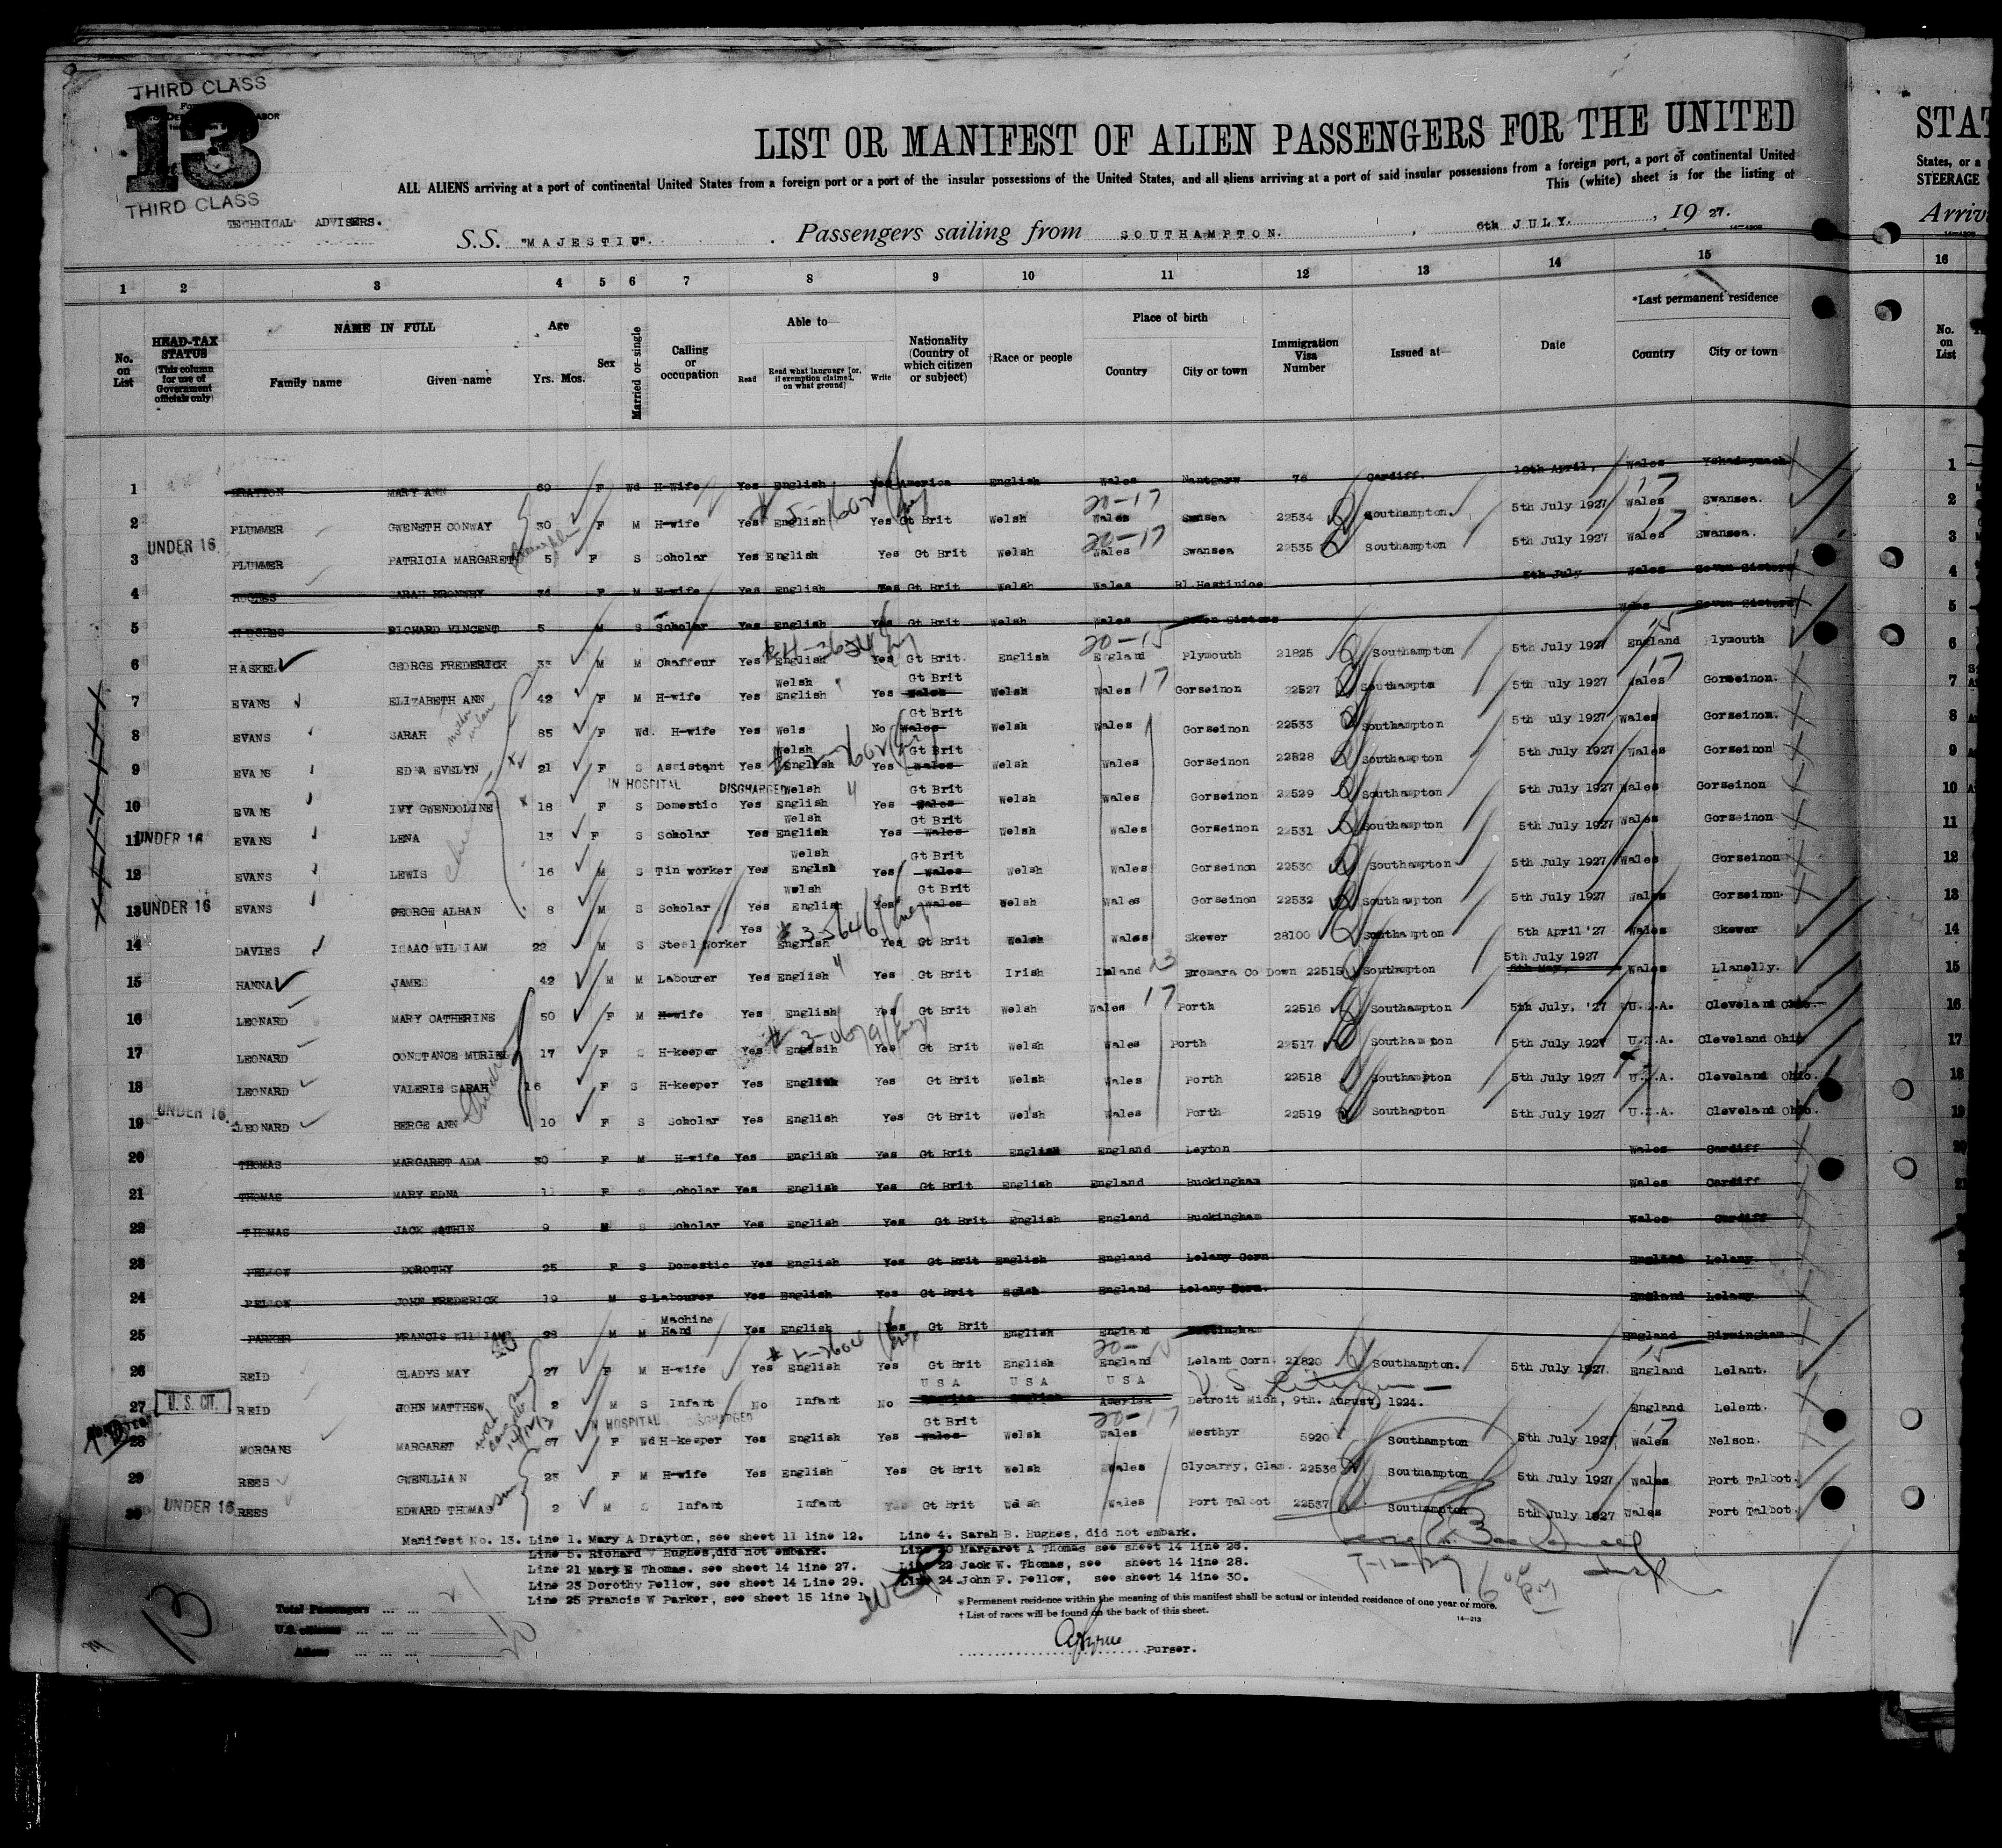 THIRD CLASS
13
THIRD CLASS
LIST OR MANIFEST OF ALIEN PASSENGERS FOR THE UNITED
STAT
ALL ALIENS arriving at a port of continental United States from a foreign port or a port of the insular possessions of the United States, and all aliens arriving at a port of said insular possessions from a foreign port, a port of continental United
States, or a
This (white) sheet is for the listing of
STEERAGE
TECHNICAL ADVISERS.
S.S. "MAJESTIC". Passengers sailing from SOUTHAMPTON. , 6th JULY. , 19 27.
Arriv
1 2 3 4 5 6 7 8 9 10 11 12 13 14 15 16
No. on List
HEAD-TAX STATUS (This column for use of Government officials only)
NAME IN FULL
Family name Given name
Age
Yrs. Mos.
Sex
Married or single
Calling or occupation
Able to
Read Read what language [or, if exemption claimed, on what ground] Write
Nationality (Country of which citizen or subject)
†Race or people
Place of birth
Country City or town
Immigration Visa Number
Issued at
Date
*Last permanent residence
Country City or town
No. on List
1 MARY ANN 69 F Wd H-Wife Yes English Yes America English Wales Nantgarw 76 Cardiff. Wales 1
2 PLUMMER GWENETH CONWAY 30 F M H-wife Yes English Yes Gt Brit Welsh Wales Swnsea 22534 Southampton. 5th July 1927 Wales Swansea. 2
UNDER 16
3 PLUMMER PATRICIA MARGARET 5 F S Scholar Yes English Yes Gt Brit Welsh Wales Swansea 22535 Southampton 5th July 1927 Wales Swansea. 3
4 HUGHES SARAH F M H-wife Yes English Yes Gt Brit Welsh Wales 5th July Wales Seven Sisters 4
5 HUGHES RICHARD VINCENT 5 M S Scholar Yes English Yes Gt Brit Welsh Wales Seven Sisters Wales Seven Sisters 5
6 HASKEL GEORGE FREDERICK 33 M M Chaffeur Yes English Yes Gt Brit. English England Plymouth 21825 Southampton 5th July 1927 England Plymouth 6
7 EVANS ELIZABETH ANN 42 F M H-wife Yes Welsh English Yes Gt Brit Wales Welsh Wales 17 Gorseinon 22527 Southampto 5th July 1927 Wales Gorseinon. 7
8 EVANS SARAH 85 F Wd. H-wife Yes Wels No Gt Brit Wales Welsh Wales Gorseinon 22533 Southampton 5th uly 1927 Wales Gorseinon. 8
9 EVANS EDNA EVELYN 21 F S Assistant Yes Welsh English Yes Gt Brit Wales Welsh Wales Gorseinon 22528 Southampton 5th July 1927 Wales Gorseinon 9
IN HOSPITAL DISCHARGED
10 EVANS IVY GWENDOLINE 18 F S Domestic Yes Welsh English Yes Gt Brit Wales Welsh Wales Gorseinon 22529 Southampton 5th July 1927 Wales Gorseinon 10
11 UNDER 16 EVANS LENA 13 F S Scholar Yes Welsh English Yes Gt Brit Wales Welsh Wales Gorseinon 22531 Southampton 5th July 1927 Wales Gorseinon 11
12 EVANS LEWIS 16 M S Tin worker Yes Welsh Englsh Yes Gt Brit Wales Welsh Wales Gorseinon 22530 Southampton 5th July 1927 Wales Gorseinon 12
13 UNDER 16 EVANS GEORGE ALBAN 8 M S Scholar Yes Welsh English Yes Gt Brit Wales Welsh Wales Gorseinon 22532 Southampton 5th July 1927 Wales Gorseinon. 13
14 DAVIES ISAAC WILLIAM 22 M S Steel Worker Yes English Yes Gt Brit Welsh Wales Skewer 28100 Southampton 5th April '27 Wales Skewer 14
15 HANNA JAMES 42 M M Labourer Yes English Yes Gt Brit Irish Ireland Dromara Co Down 22515 Southmpton 5th July 1927 Wales Llanelly. 15
16 LEONARD MARY CATHERINE 50 F M H-wife Yes English Yes Gt Brit Welsh Wales 17 Porth 22516 Southampton 5th July, '27 U.S.A. Cleveland Ohio. 16
17 LEONARD CONSTANCE MURIEL 17 F S H-keeper Yes Engisih Yes Gt Brit Welsh Wales Porth 22517 Southampton 5th July 1927 U.S.A. Cleveland Ohio 17
18 LEONARD VALERIE SARAH 16 F S H-keeper Yes English Yes Gt Brit Welsh Wales Porth 22518 Southampton 5th July 1927 U.S.A. Cleveland Ohio. 18
UNDER 16
19 LEONARD BERGE ANN 10 F S Scholar Yes English Yes Gt Brit Welsh Wales Porth 22519 Southapton 5th July 1927 U.S.A. Cleveland Ohio. 19
20 THOMAS MARGARET ADA 30 F M H-wife Yes English Yes Gt Brit English England Leyton Wales Cardiff 20
21 THOMAS MARY EDNA F S Scholar Yes English Yes Gt Brit English England Buckingham Wales Cardiff 21
22 THOMAS JACK 9 M S Scholar Yes English Yes Gt Brit English England Buckingham Wales Cardiff
23 PELLOW DOROTHY 25 F S Domestic Yes English Yes Gt Brit English England Lelany Corn England Lelany
24 PELLOW JOHN FREDERICK 19 M S Labourer Yes English Yes Gt Brit England Lelany Corn. England Lelany.
25 PARKER FRANCIS WILLIAM 28 M M Machine Hand Yes English Yes Gt Brit English England England Birmingham
26 REID GLADYS MAY 27 F M H-wife Yes English Yes Gt Brit English England Lelant Corn. 21820 Southampton. 5th July 1927 England Lelant.
27 U. S. CIT. REID JOHN MATTHEW 2 M S Infant No Infant No U S A U S A U S A U S Citizen Detroit Mich, 9th. August, 1924. England Lelent.
IN HOSPITAL DISCHARGED
28 MORGANS MARGARET 67 F Wd H-keeper Yes English Yes Gt Brit Wales Welsh Wales Mesthyr 5920 Southampton 5th July 1927 Wales Nelson.
29 REES GWENLLIAN F M H-wife Yes English Yes Gt Brit Welsh Wales Glycarry, Glam. 22536 Southampton 5th July 1927 Wales Port Talbot.
30 UNDER 16 REES EDWARD THOMAS 2 M S Infant Infant Yes Gt Brit Welsh Wales Port Talbot 22537 Southampton 5th July 1927 Wales Port Talbot.
Manifest No. 13. Line 1. Mary A Drayton, see sheet 11 line 12. Line 4. Sarah B. Hughes, did not embark.
Line 5. Richard V Hughes, did not embark. Line 20 Margaret A Thomas see sheet 14 line 26.
Line 21 Mary E Thomas. see sheet 14 line 27. Line 22 Jack W. Thomas, see sheet 14 line 28.
Line 23 Dorothy Pellow, see sheet 14 Line 29. Line 24 John F. Pellow, see sheet 14 line 30.
Line 25 Francis W Parker, see sheet 15 line 1
13
Total Passengers ... ... 21
U.S. citizens ... ... ... 1
Aliens ... ... ... 20
* Permanent residence within the meaning of this manifest shall be actual or intended residence of one year or more.
† List of races will be found on the back of this sheet.
14—213
Purser.